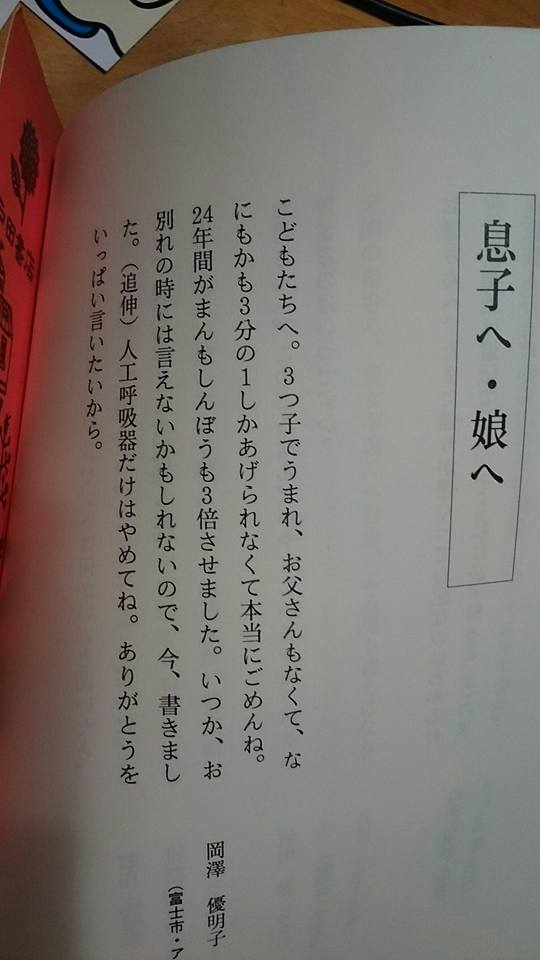 息子へ・娘へ
こどもたちへ。3つ子でうまれ、お父さんもなくて、な
にもかも3分の1しかあげられなくて本当にごめんね。
24年間がまんもしんぼうも3倍させました。いつか、お
別れの時には言えないかもしれないので、今、書きまし
た。（追伸）人工呼吸器だけはやめてね。ありがとうを
いっぱい言いたいから。
岡澤 優明子
（富士市・ア